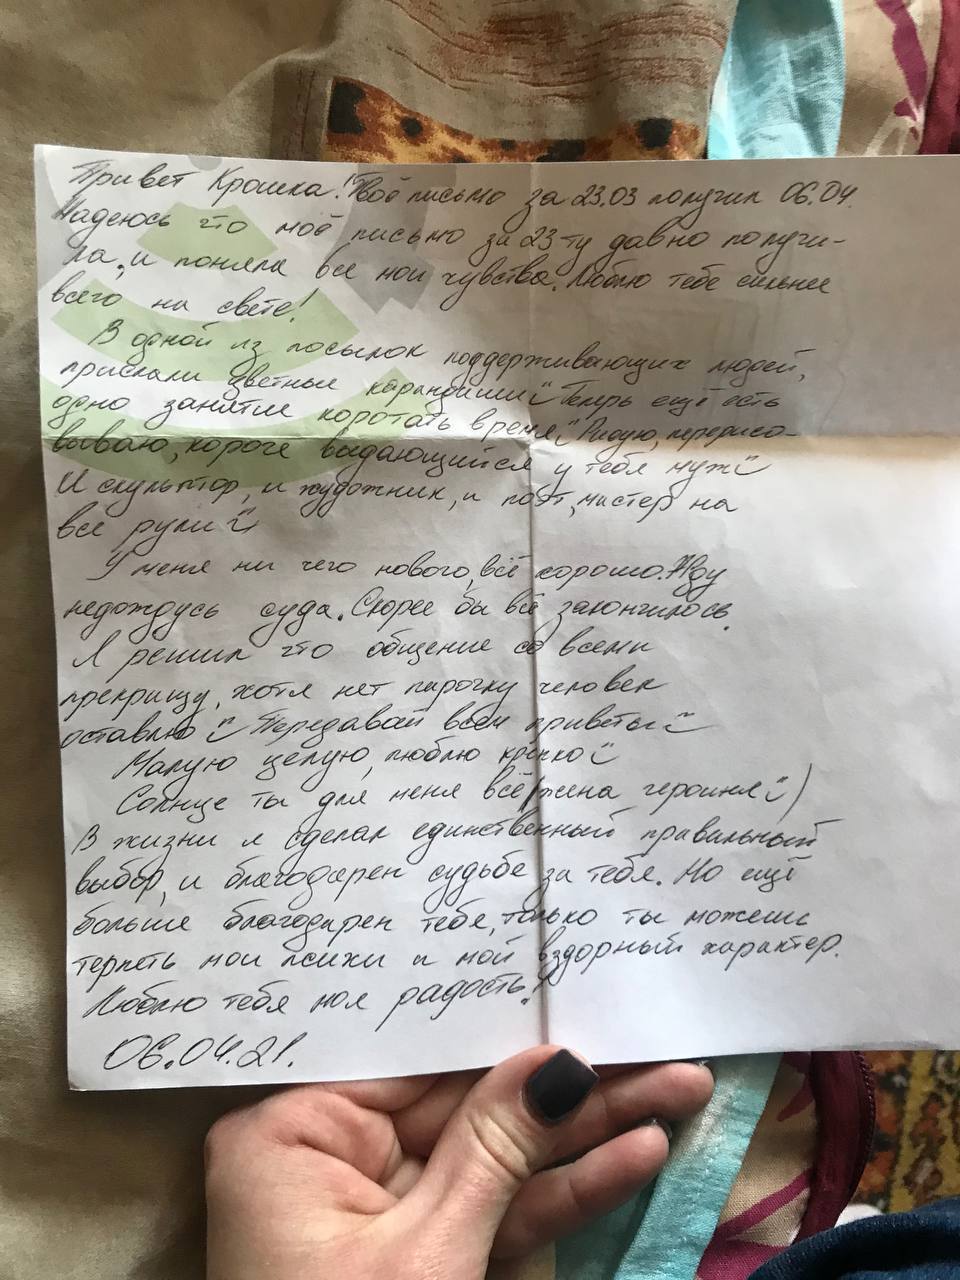 Привет Крошка! Твоё письмо за 23.03 получил 06.04.
Надеюсь что моё письмо за 23ту давно получи-
ла, и поняла все мои чувства. Люблю тебе сильнее
всего на свете!
В одной из посылок поддерживающих людей,
прислали цветные карандаши Теперь ещё есть
одно занятие коротать время Рисую, перерисо-
вываю, короче выдающийся у тебя муж
И скульптор, и художник, и поэт, мистер на
все руки
У меня ни чего нового, всё хорошо. Жду
недождусь суда. Скорее бы всё закончилось.
Я решил что общение со всеми
прекращу, хотя нет парочку человек
оставлю Передавай всем приветы
Малую целую, люблю крепко
Солнце ты для меня всё (жена героиня)
В жизни я сделал единственный правильный
выбор, и благодарен судьбе за тебя. Но ещё
больше благодарен тебе, только ты можешь
терпеть мои психи и мой вздорный характер.
Люблю тебя моя радость!
06.04.21.